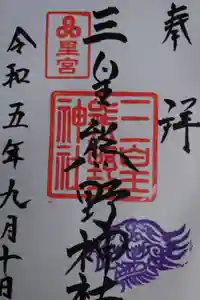 奉拝
三皇熊野神社
皇宮
三皇熊野神社
令和五年九月十日